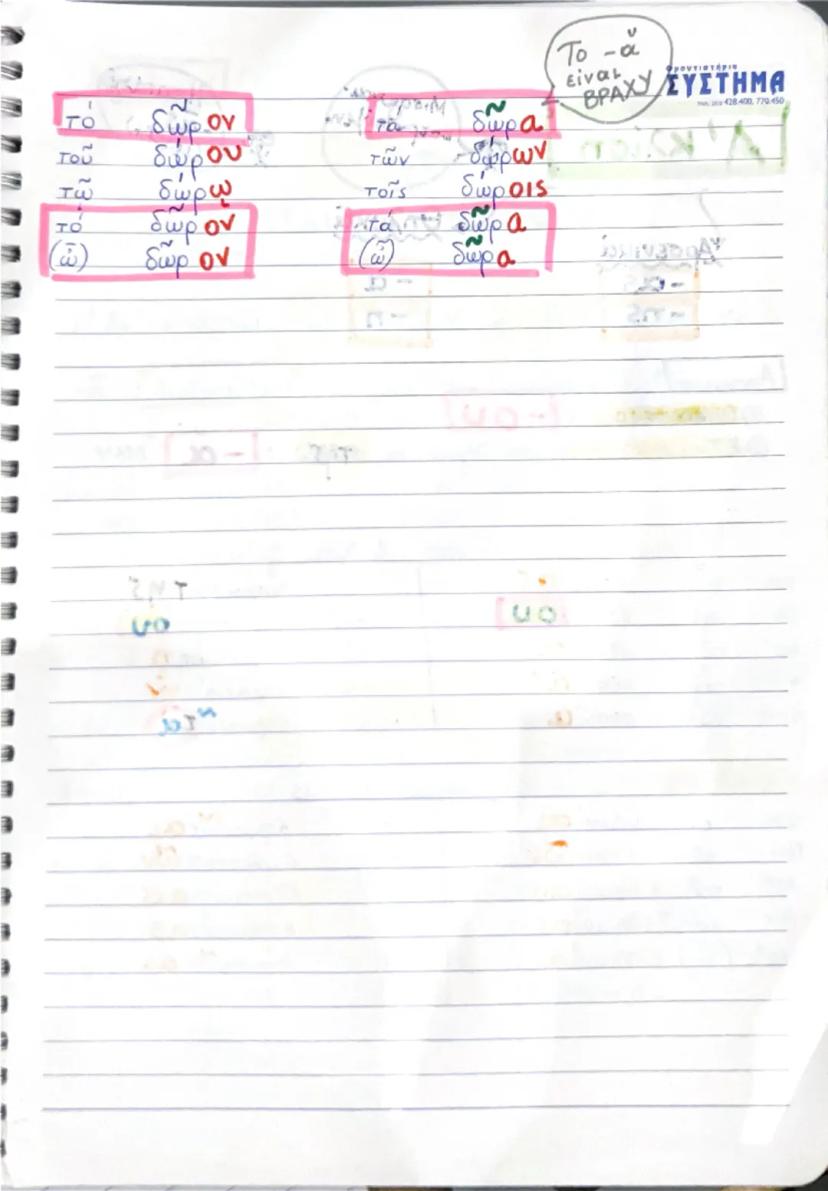 Το -ᾰ
είναι
ΒΡΑΧΥ
φροντιστήριο
ΣΥΣΤΗΜΑ
428.400, 770.450
τό δῶρον τά δῶρα
τοῦ δώρου τῶν δώρων
τῶ δώρῳ τοῖς δώροις
τό δῶρον τά δῶρα
(ὦ) δῶρον (ὦ) δῶρα